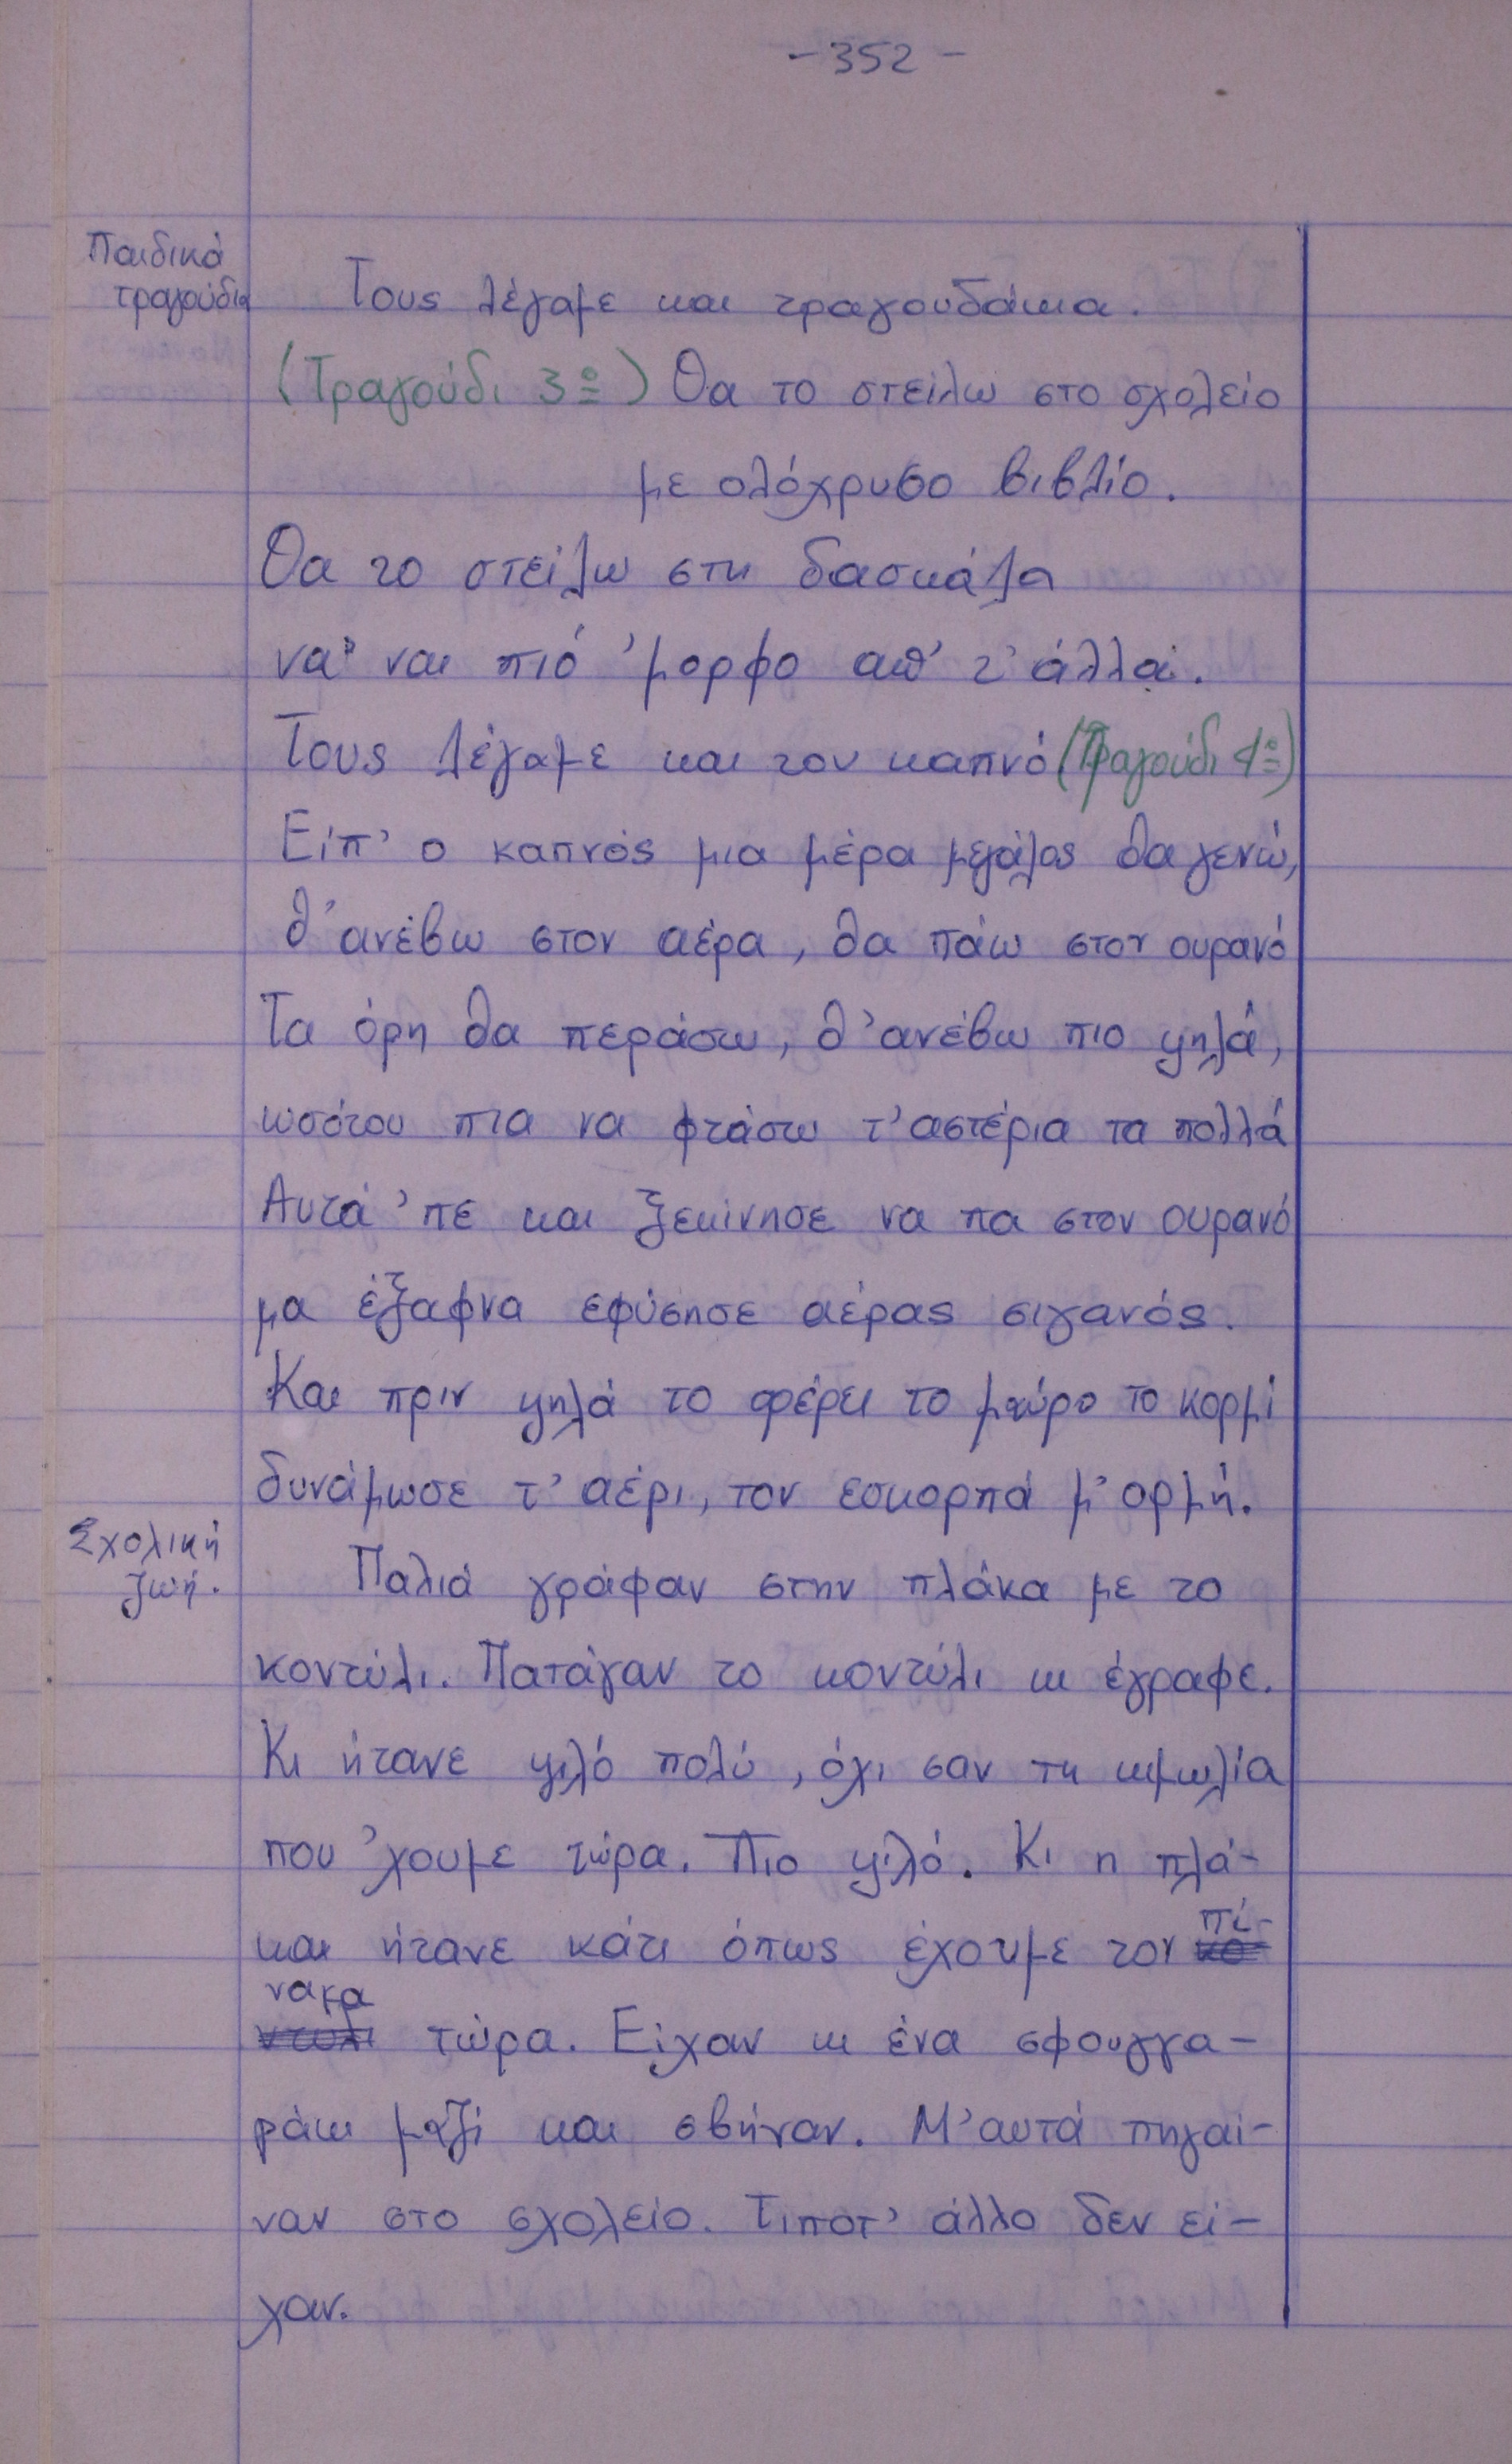 - 352 -
Παιδικά
τραγούδια
Τους λέγαμε και τραγουδάκια.
(Τραγούδι 3º) Θα το στείλω στο σχολείο
με ολόχρυσο βιβλίο.
Θα το στείλω στη δασκάλα
να 'ναι πιό 'μορφο απ' τ' άλλα.
Τους λέγαμε και τον καπνό (Τραγούδι 4º)
Είπ' ο καπνός μια μέρα μεγάλος θα γενώ,
θ' ανέβω στον αέρα, θα πάω στον ουρανό
Τα όρη θα περάσω, θ' ανέβω πιο ψηλά,
ωσότου πια να φτάσω τ' αστέρια τα πολλά
Αυτά 'πε και ξεκίνησε να πα στον ουρανό
μα έξαφνα εφύσησε αέρας σιγανός.
Και πριν ψηλά το φέρει το μαύρο το κορμί
δυνάμωσε τ' αέρι, τον εσκορπά μ' ορμή.
Σχολική
ζωή.
Παλιά γράφαν στην πλάκα με το
κοντύλι. Πατάγαν το κοντύλι κι έγραφε.
Κι ήτανε ψιλό πολύ, όχι σαν τη κιμωλία
που 'χουμε τώρα. Πιο ψιλό. Κι η πλά-
κα ήτανε κάτι όπως έχουμε τον κο πί-
ντύλι νακα τώρα. Είχαν κι ένα σφουγγα-
ράκι μαζί και σβήναν. Μ' αυτά πηγαί-
ναν στο σχολείο. Τίποτ' άλλο δεν εί-
χαν.